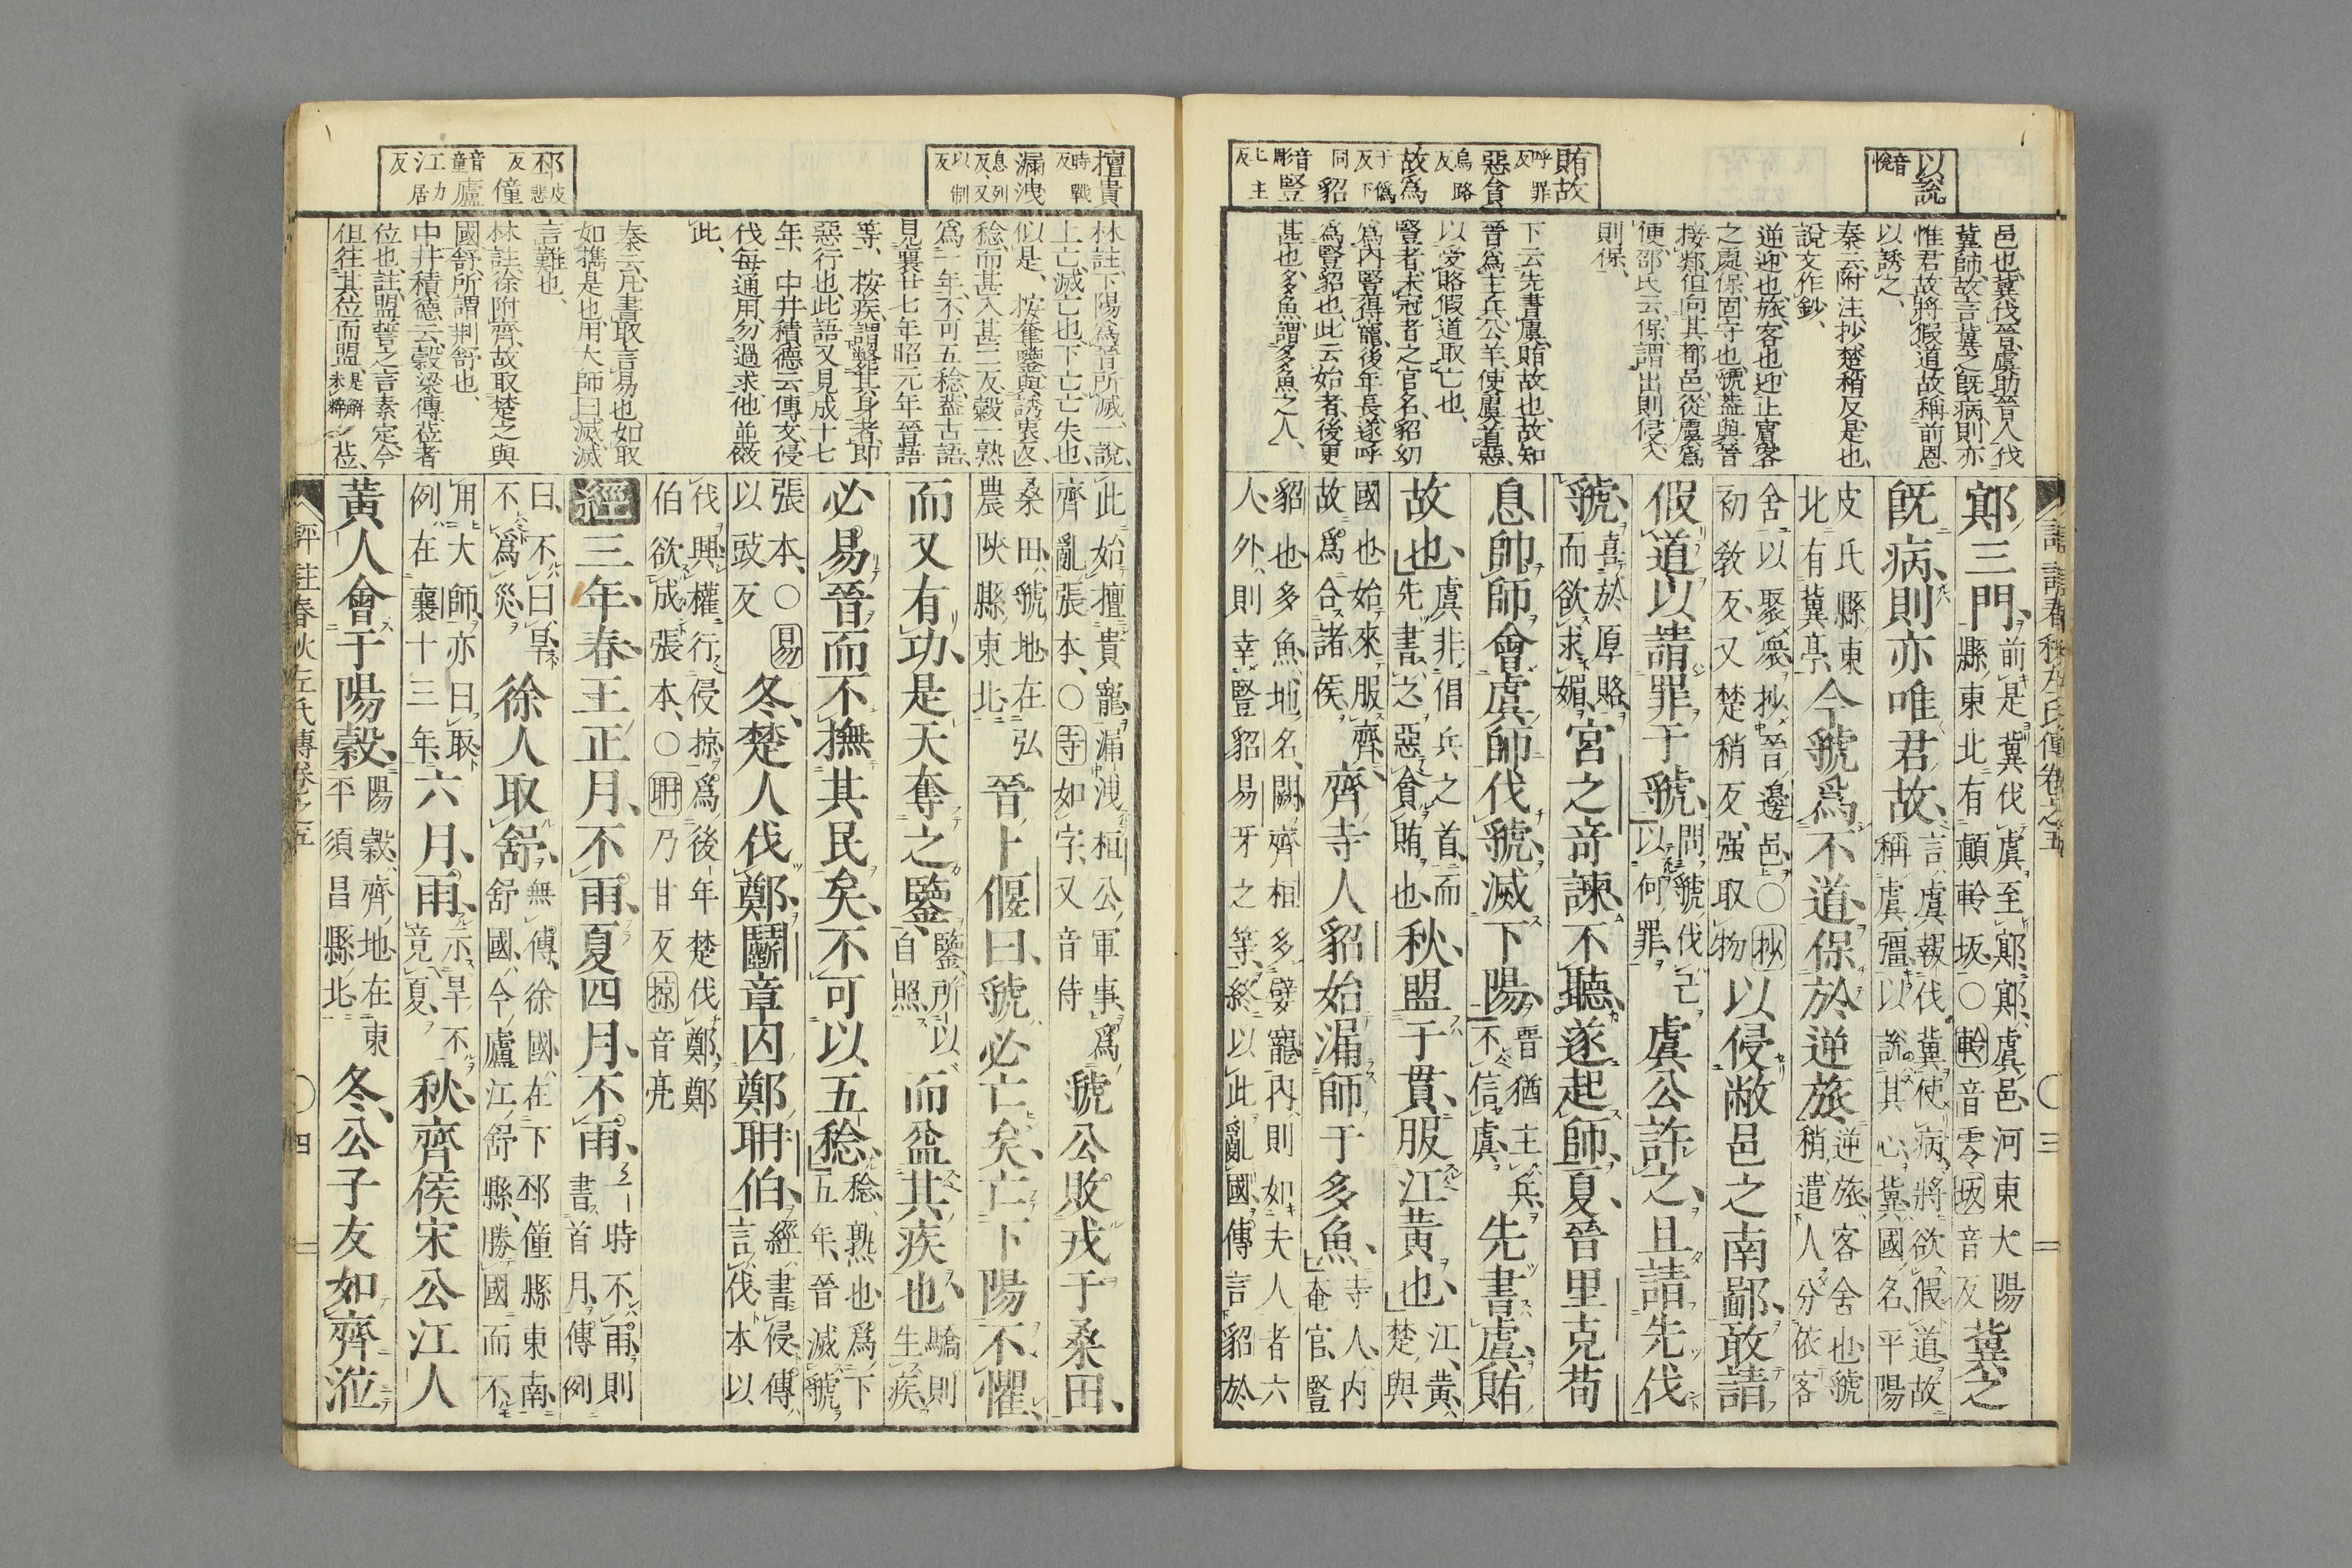 以説
音
悅
賄故
呼罪
反
惡貪
烏路
反
故爲
于僞
反下
同貂
音
彫豎
上主
反
邑也、冀伐晉、虞助晉人伐
冀師、故言冀之既病、則亦
惟君故、將假道、故稱前恩
以誘之、
秦云、附注、抄、楚稍反、是也、
說文作鈔、
逆、迎也、旅、客也、迎止賓客
之處、保、固守也、虢蓋與晉
接鄰、但向其都邑、從虞爲
便、邵氏云、保、謂出則侵人
則保、
下云、先書虞、賄故也、故知
晉爲主兵、公羊、使虞首惡、
以受賂假道取亡也、
豎者、未冠者之官名、貂幼
爲內豎得寵、後年長、遂呼
爲豎貂也、此云始者、後更
甚也、多魚、謂多魚之人、
鄍三門、
前是冀伐虞至鄍、鄍、虞邑、河東大陽
縣東北有顚軨坂、○軨音零坂音反
冀之
既病、則亦唯君故、
言虞報伐冀使病、將欲假道、故
稱虞彊以說其心、冀、國名、平陽
皮氏縣東
北有冀亭、
今虢爲不道、保於逆旅、
逆旅、客舍也、虢
稍遣人分依客
舍以聚衆抄晉邊邑、○抄
初教反、又楚稍反、强取物
以侵敝邑之南鄙、敢請
假道以請罪于虢、
問虢伐己
以何罪、
虞公許之、且請先伐
虢、
喜於厚賂
而欲求媚、
宮之奇諫、不聽、遂起師、夏、晉里克荀
息帥師會虞師伐虢、滅下陽、
晉猶主兵、
不信虞、
先書虞、賄
故也、
虞非倡兵之首、而
先書之、惡貪賄也、
秋、盟于貫、服江黃也、
江、黃、楚與
國也、始來服齊、
故爲合諸侯、
齊寺人貂始漏師于多魚、
寺人、內
奄官、豎
貂也、多魚、地名、闕、齊桓多嬖寵、內則如夫人者六
人、外則幸豎貂易牙之等、終以此亂國、傳言貂於
三
擅貴
時戰
反
漏洩
息列
反又
以制
反
邳
皮悲
反
僮
音
童
廬
力居
江
反
林註、下陽爲晉所滅、一說、
上亡、滅亡也、下亡、亡失也、
似是、按奪鑒與誘衷反、
稔而甚入甚二反、穀一熟
爲一年、不可五稔、蓋古語、
見襄廿七年昭元年晉語
等、按疾謂弊其身者、即
惡行也、此語又見成十七
年、中井積德云、傳文、侵
伐每通用、勿過求、他並倣
此、
秦云、凡書取、言易也、如取
如攜是也、用大師曰滅、滅
言難也、
林註、徐附齊、故取楚之與
國舒、所謂荆舒也、
中井積德云、穀梁傳、莅者
位也、註、盟誓之言素定、今
但往其位而盟、是解未粹、莅、
此始擅貴寵、漏洩桓公軍事、爲
齊亂張本、○寺如字、又音侍
虢公敗戎于桑田、
桑田、虢地、在弘
農陝縣東北、
晉卜偃曰、虢必亡矣、亡下陽不懼、
而又有功、是天奪之鑒、
鑒、所以
自照、
而益其疾也、
驕則
生疾、
必易晉而不撫其民矣、不可以五稔、
稔、熟也、爲下
五年、晉滅虢
張本、○易
以豉反
冬、楚人伐鄭、鬭章囚鄭聃伯、
經書侵、傳
言伐、本以
伐興、權行侵掠、爲後年楚伐鄭、鄭
伯欲成張本、○聃乃甘反掠音亮
經三年、春、王正月、不雨、夏四月、不雨、
一時不雨、則
書首月、傳例
曰、不曰旱、
不爲災、
徐人取舒、
無傳、徐國在下邳僮縣東南、
舒國、今廬江舒縣、勝國而不
用大師、亦曰取、
例在襄十三年、
六月、雨、
示旱不
竟夏、
秋、齊侯宋公江人
黃人會于陽穀、
陽穀、齊地、在東
平須昌縣北、
冬、公子友如齊涖
評註春秋左氏傳卷之五
四